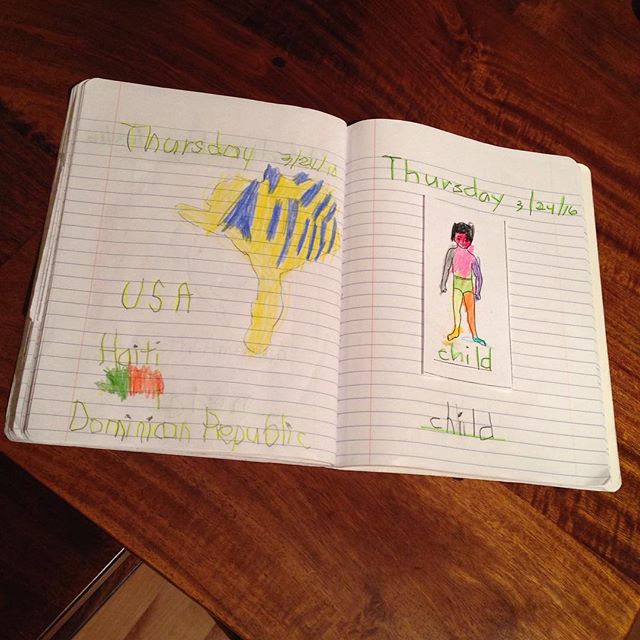 Thursday 3/24/16
USA
Haiti
Dominican Republic
Thursday 3/24/16
child
child